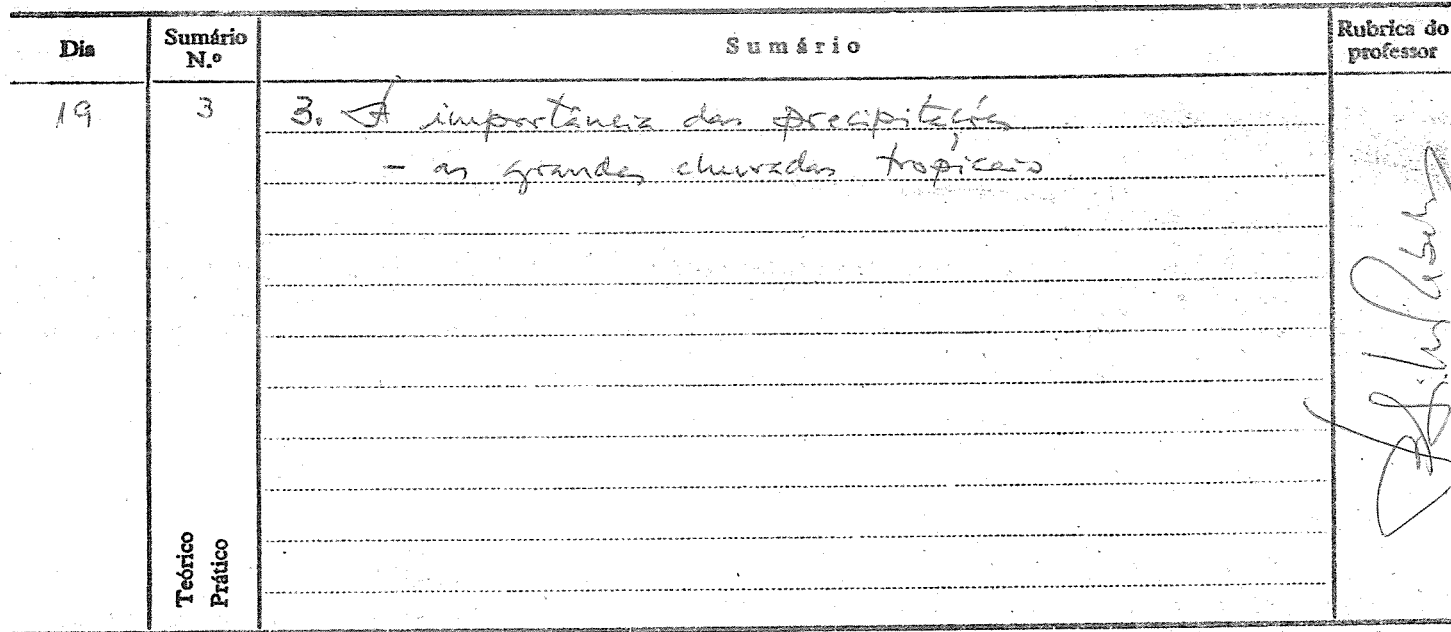 Dia
Sumário N.º
Sumário
Rubrica do professor
19
3
3. A importância das precipitações
- as grandes chuvadas tropicais
Teórico
Prático